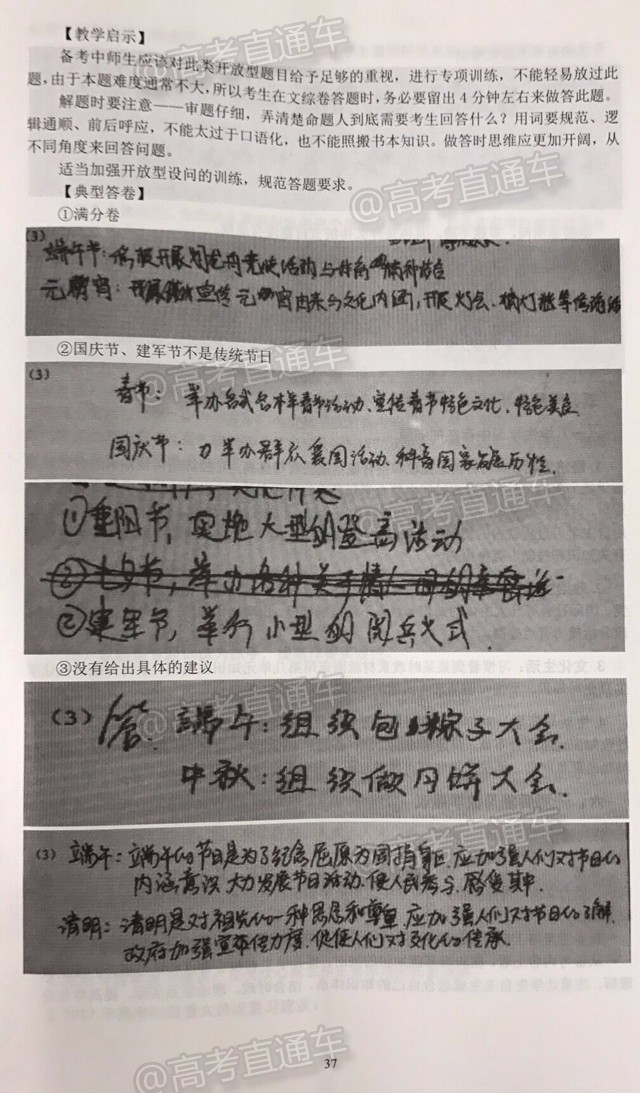 【教学启示】
备考中师生应该对此类开放型题目给予足够的重视，进行专项训练，不能轻易放过此
题，由于本题难度通常不大，所以考生在文综卷答题时，务必要留出 4 分钟左右来做答此题。
解题时要注意——审题仔细，弄清楚命题人到底需要考生回答什么？用词要规范、逻
辑通顺、前后呼应，不能太过于口语化，也不能照搬书本知识。做答时思维应更加开阔，从
不同角度来回答问题。
适当加强开放型设问的训练，规范答题要求。
【典型答卷】
①满分卷
(3)
端午节：积极开展划龙舟竞赛活动
元宵：宣传元宵由来与文化内涵，开展灯会、猜灯谜等传统活
②国庆节、建军节不是传统节日
(3)
春节：举办各式各样春节活动、宣传春节特色文化、特色美食
国庆节：举办群众爱国活动、科普国家发展历程。
①重阳节，实施大型的登高活动
②七夕节，举办各种关于情人
②建军节，举行小型的阅兵仪式。
③没有给出具体的建议
(3) 答：端午：组织包粽子大会。
中秋：组织做月饼大会。
(3) 端午：端午的节日是为了纪念屈原为国捐躯 应加强人们对节日的
内涵意识 大力发展节日活动、使人民参与、感受其中.
清明：清明是对祖先的一种思念和尊重，应加强人们对节日的了解
政府加强宣传力度、促使人们对文化的传承。
37
@高考直通车
@高考直通车
@高考直通车
@高考直通车
@高考直通车
@高考直通车
@高考直通车
@高考直通车